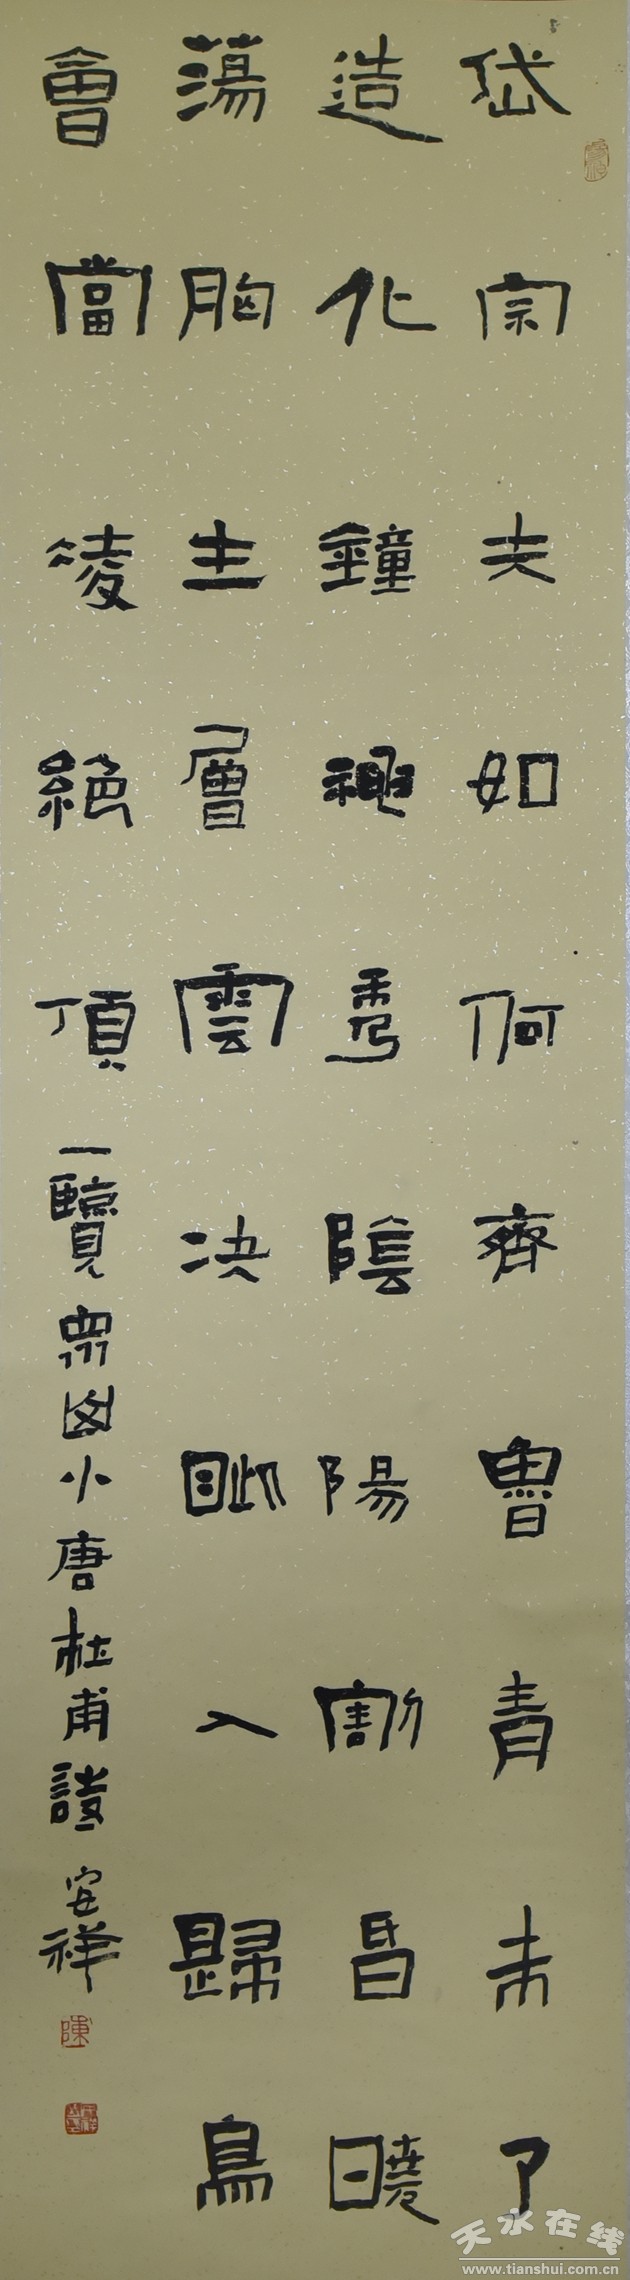 岱宗夫如何齊魯青未了
造化鐘神秀陰陽割昏曉
蕩胸生層雲决眦入歸鳥
會當凌絶頂一覽眾山小唐杜甫詩安祥
陳
天水在线
www.tianshui.com.cn